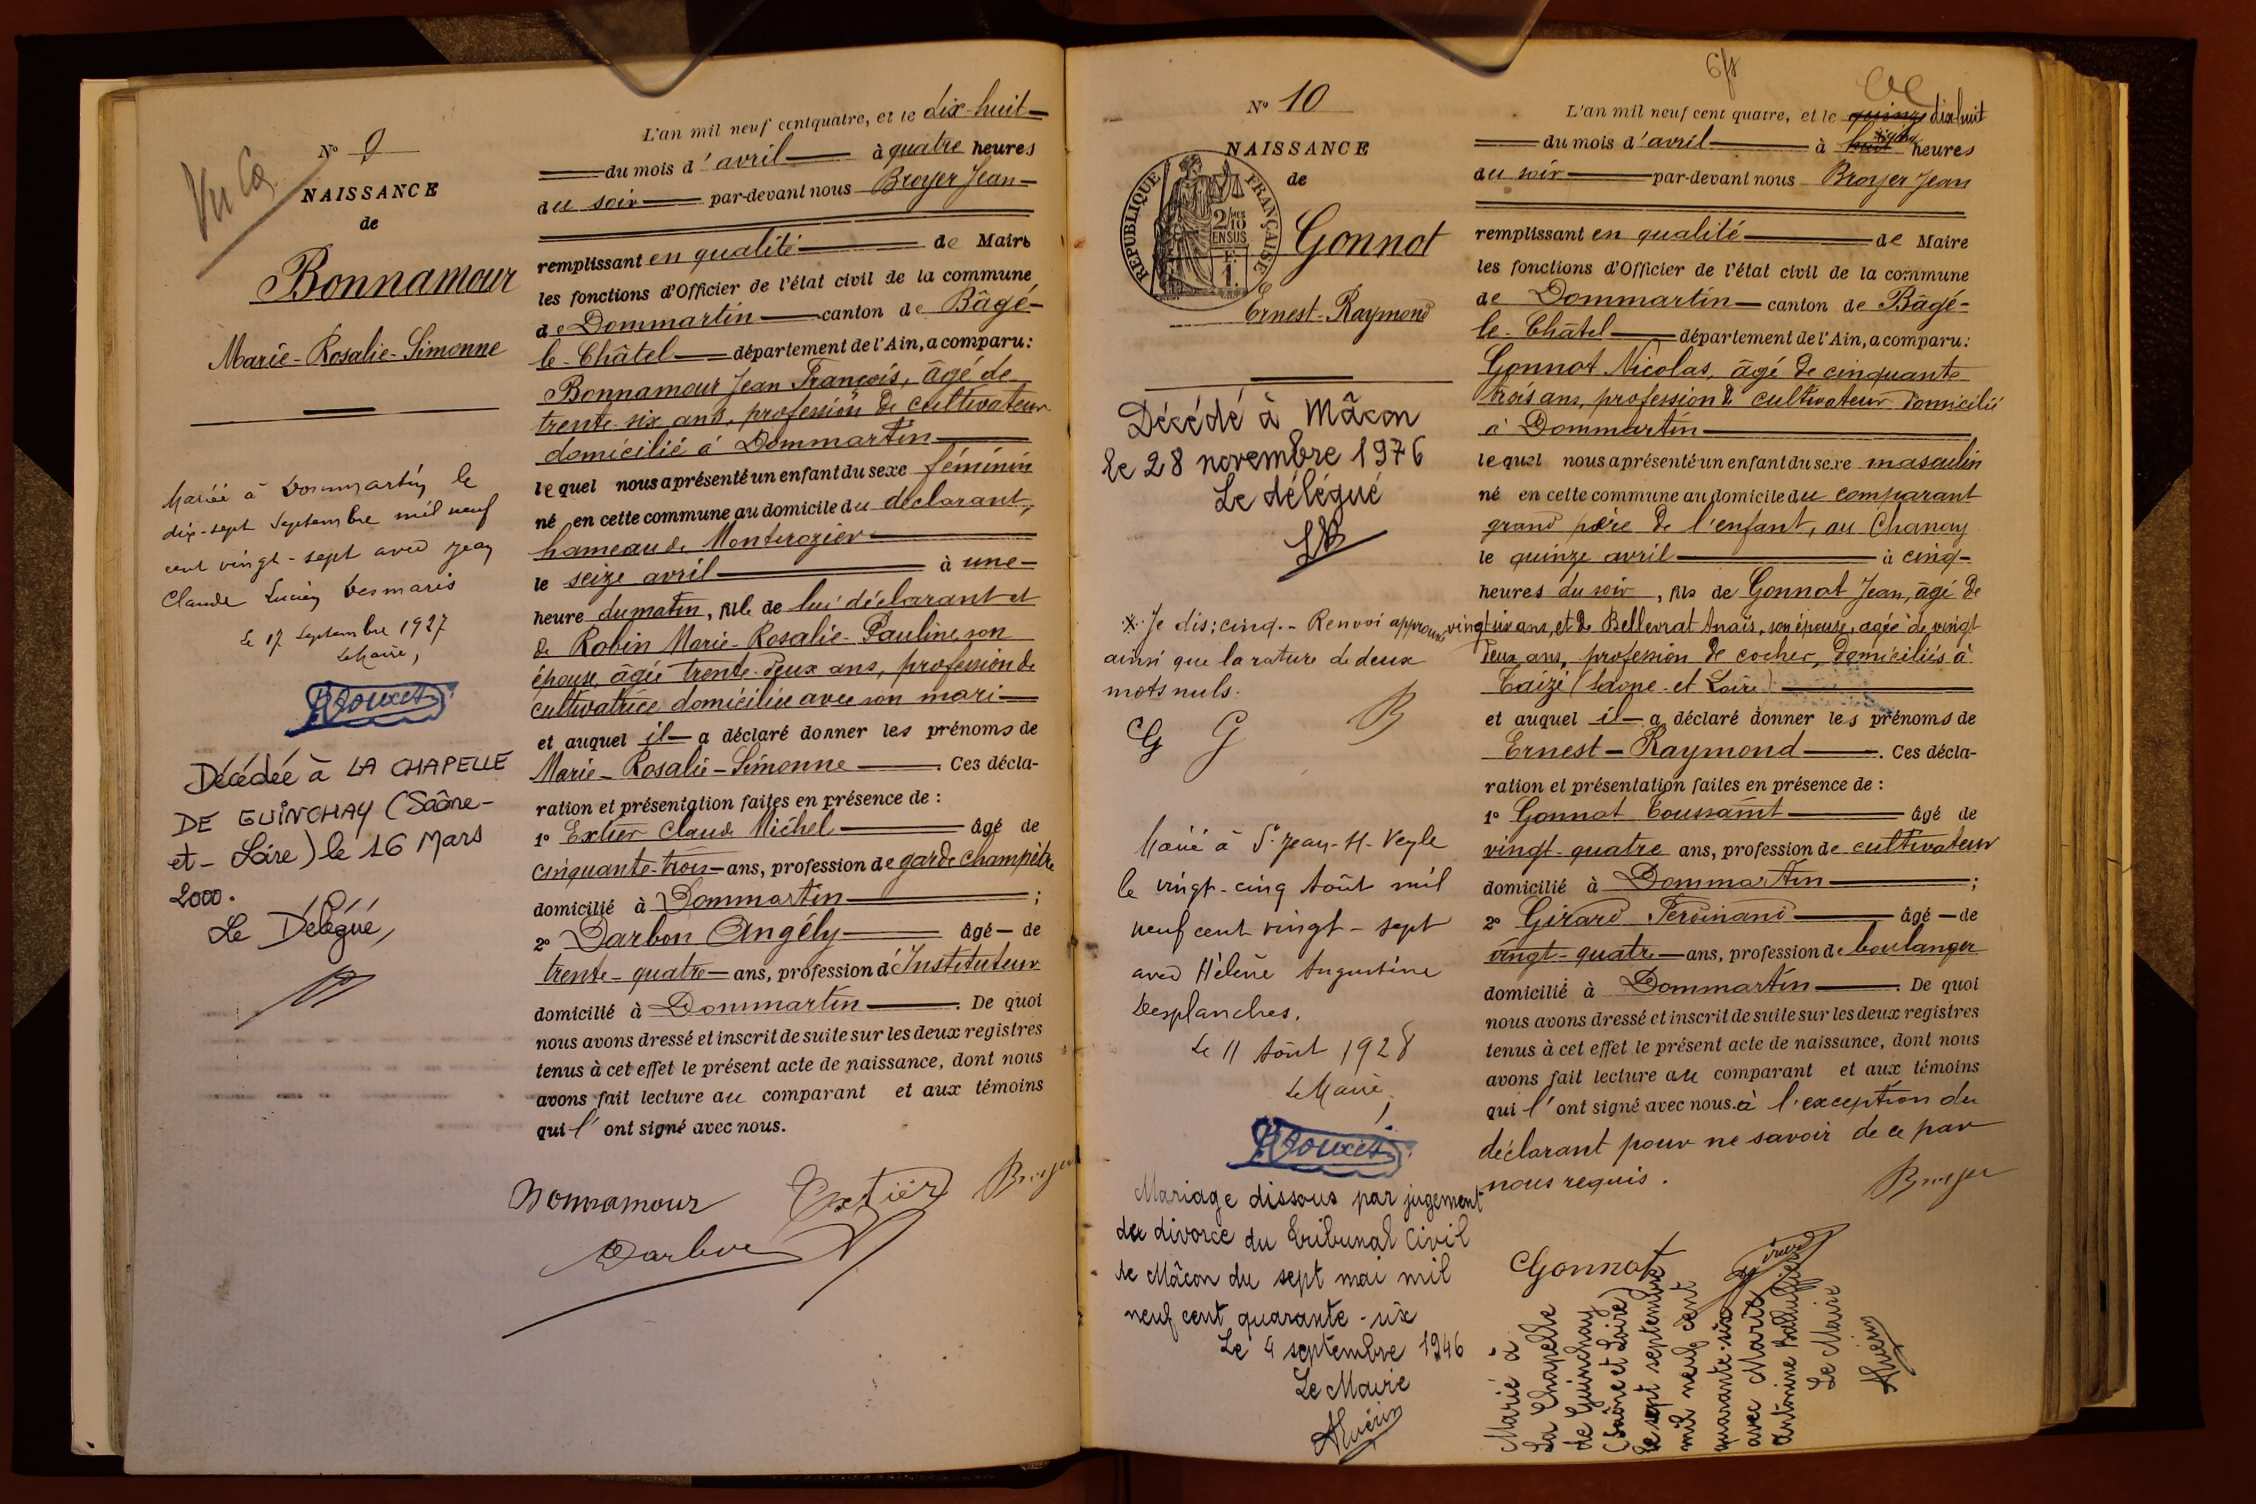 Vu
N° 9
NAISSANCE
de
Bonnamour
Marie-Rosalie-Simonne
Mariée à Dommartin le
dix-sept Septembre mil neuf
cent vingt-sept avec Jean
Claude Lucien Desmaris
Le 17 Septembre 1927
Le Maire,
Décédée à LA CHAPELLE
DE GUINCHAY (Saône-
et-Loire) le 16 Mars
2000.
Le Délégué,
L'an mil neuf cent quatre, et le dix-huit
du mois d'avril à quatre heures
du soir par-devant nous Broyer Jean
remplissant en qualité de Maire
les fonctions d'Officier de l'état civil de la commune
de Dommartin canton de Bâgé-
le-Châtel département de l'Ain, a comparu:
Bonnamour Jean François, âgé de
trente-six ans, profession de cultivateur
domicilié à Dommartin
lequel nous a présenté un enfant du sexe féminin
né en cette commune au domicile du déclarant,
hameau de Monterozier
le seize avril à une
heure du matin, fille de lui déclarant et
de Robin Marie-Rosalie-Pauline son
épouse âgée trente-deux ans, profession de
cultivatrice domiciliée avec son mari
et auquel il a déclaré donner les prénoms de
Marie-Rosalie-Simonne. Ces décla-
ration et présentation faites en présence de :
1° Extier Claude Michel âgé de
cinquante-trois ans, profession de garde champêtre
domicilié à Dommartin ;
2° Darbon Angély âgé de
trente-quatre ans, profession d'Instituteur
domicilié à Dommartin. De quoi
nous avons dressé et inscrit de suite sur les deux registres
tenus à cet effet le présent acte de naissance, dont nous
avons fait lecture au comparant et aux témoins
qui l'ont signé avec nous.
Bonnamour Extier Broyer
Darbon
N° 10
NAISSANCE
de
RÉPUBLIQUE FRANÇAISE
2/10
EN SUS
Gonnot
Ernest-Raymond
Décédé à Mâcon
le 28 novembre 1976
Le délégué
* Je dis: cinq.- Renvoi approuvé
ainsi que la rature de deux
mots nuls.
CG G B
Marié à St Jean-s-Veyle
le vingt-cinq Août mil
neuf cent vingt-sept
avec Hélène Augustine
Desplanches.
Le 11 Août 1928
Le Maire,
Mariage dissous par jugement
de divorce du Tribunal Civil
de Mâcon du sept mai mil
neuf cent quarante-six
Le 4 septembre 1946
Le Maire
L'an mil neuf cent quatre, et le quinze dix-huit
du mois d'avril à heures
du soir par-devant nous Broyer Jean
remplissant en qualité de Maire
les fonctions d'Officier de l'état civil de la commune
de Dommartin canton de Bâgé-
le-Châtel département de l'Ain, a comparu:
Gonnot Nicolas, âgé de cinquante
trois ans, profession de cultivateur domicilié
à Dommartin
lequel nous a présenté un enfant du sexe masculin
né en cette commune au domicile du comparant
grand père de l'enfant, au Chanay
le quinze avril à cinq
heures du soir, fils de Gonnot Jean, âgé de
vingt six ans, et de Bellevrat Anaïs, son épouse, agée de vingt
deux ans, profession de cocher, domiciliés à
Taizé (Saone-et-Loire)
et auquel il a déclaré donner les prénoms de
Ernest-Raymond. Ces décla-
ration et présentation faites en présence de :
1° Gonnot Toussaint âgé de
vingt-quatre ans, profession de cultivateur
domicilié à Dommartin ;
2° Girard Ferdinand âgé de
vingt-quatre ans, profession de boulanger
domicilié à Dommartin. De quoi
nous avons dressé et inscrit de suite sur les deux registres
tenus à cet effet le présent acte de naissance, dont nous
avons fait lecture au comparant et aux témoins
qui l'ont signé avec nous. à l'exception du
déclarant pour ne savoir de ce par
nous requis.
Broyer
Gonnot Girard
Marié à
La Chapelle
de Guinchay
(Saône et Loire)
le sept septembre
mil neuf cent
quarante-six
avec Marie
Antonine
Le Maire